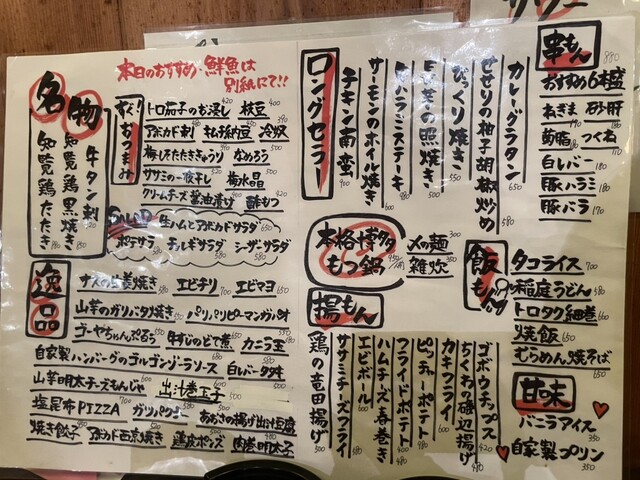 本日のおすすめ・鮮魚は
別紙にて!!
名物
牛タン刺
知覧鶏黒焼き
知覧鶏たたき
すぐ!おつまみ
トロ茄子のお浸し 420 枝豆 400
アボカド刺 まぐろ納豆 冷奴
梅しそたたききゅうり なめろう
ササミの一夜干し 梅水晶
クリームチーズ醤油漬け 酢もつ 420
生ハムとアボカドサラダ
ポテサラ チョレギサラダ シーザーサラダ
逸品
ナスの生姜焼き エビチリ 700 エビマヨ 650
山芋のガリバタ焼き パリパリピーマン
ゴーヤちゃんぷるぅ 牛すじのどて煮 カニ玉
自家製ハンバーグのゴルゴンゾーラソース 白レバータタキ
山芋明太チーズもんじゃ 出汁巻玉子 500
塩昆布PIZZA 700 ガツパクチー あおさの揚げ出汁豆腐
焼き餃子 アボカド西京焼き 鶏皮ポン酢 肉巻明太子
ロングセラー
カレーグラタン 650
せせりの柚子胡椒炒め 580
びっくり焼き
の照焼き
豚バラミニステーキ 480
サーモンのホイル焼き 600
チキン南蛮 400
本格博多もつ鍋
〆の麺 300
雑炊
揚もん
ゴボウチップス
ちくわの磯辺揚げ 420
カキフライ
ピッチャーポテト 480
フライドポテト 400
ハムチーズ春巻き
エビボール 600
ササミチーズフライ
鶏の竜田揚げ 500
串もん
おすすめ6本盛 880
ねぎま 砂肝
つくね
白レバー
豚ハラミ 180
豚バラ 170
飯もん
タコライス 700
稲庭うどん
トロタク細巻 660
焼飯
むらめん焼そば 650
甘味
バニラアイス 350
自家製プリン 350